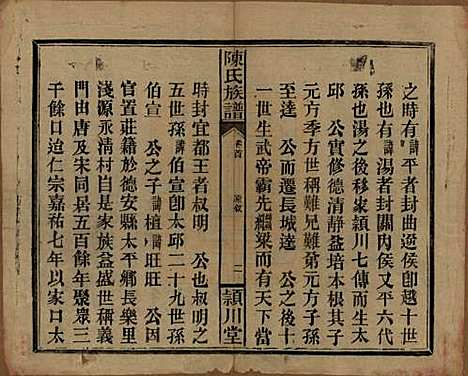 之時有諱平者封曲逆侯卽越十世
孫也有諱湯者封關內侯又平六代
孫也湯之後移家頴川七傳而生太
邱　公實修德清靜益培本根其子
元方季方世稱難兄難第元方子孫
至達　公而遷長城達　公之後十
一世生武帝霸先繼梁而有天下當
陳氏族譜
卷首
源叙
二
頴川堂
時封宜都王者叔明　公也叔明之
五世孫諱伯宣卽太邱二十九世孫
伯宣　公之子諱檀旺旺　公因
官置莊籍於德安縣太平鄉長樂里
淺源永清村自其家族益盛世稱義
門由唐及宋同居五百餘年聚眾三
千餘口迨仁宗嘉祐七年以家口太